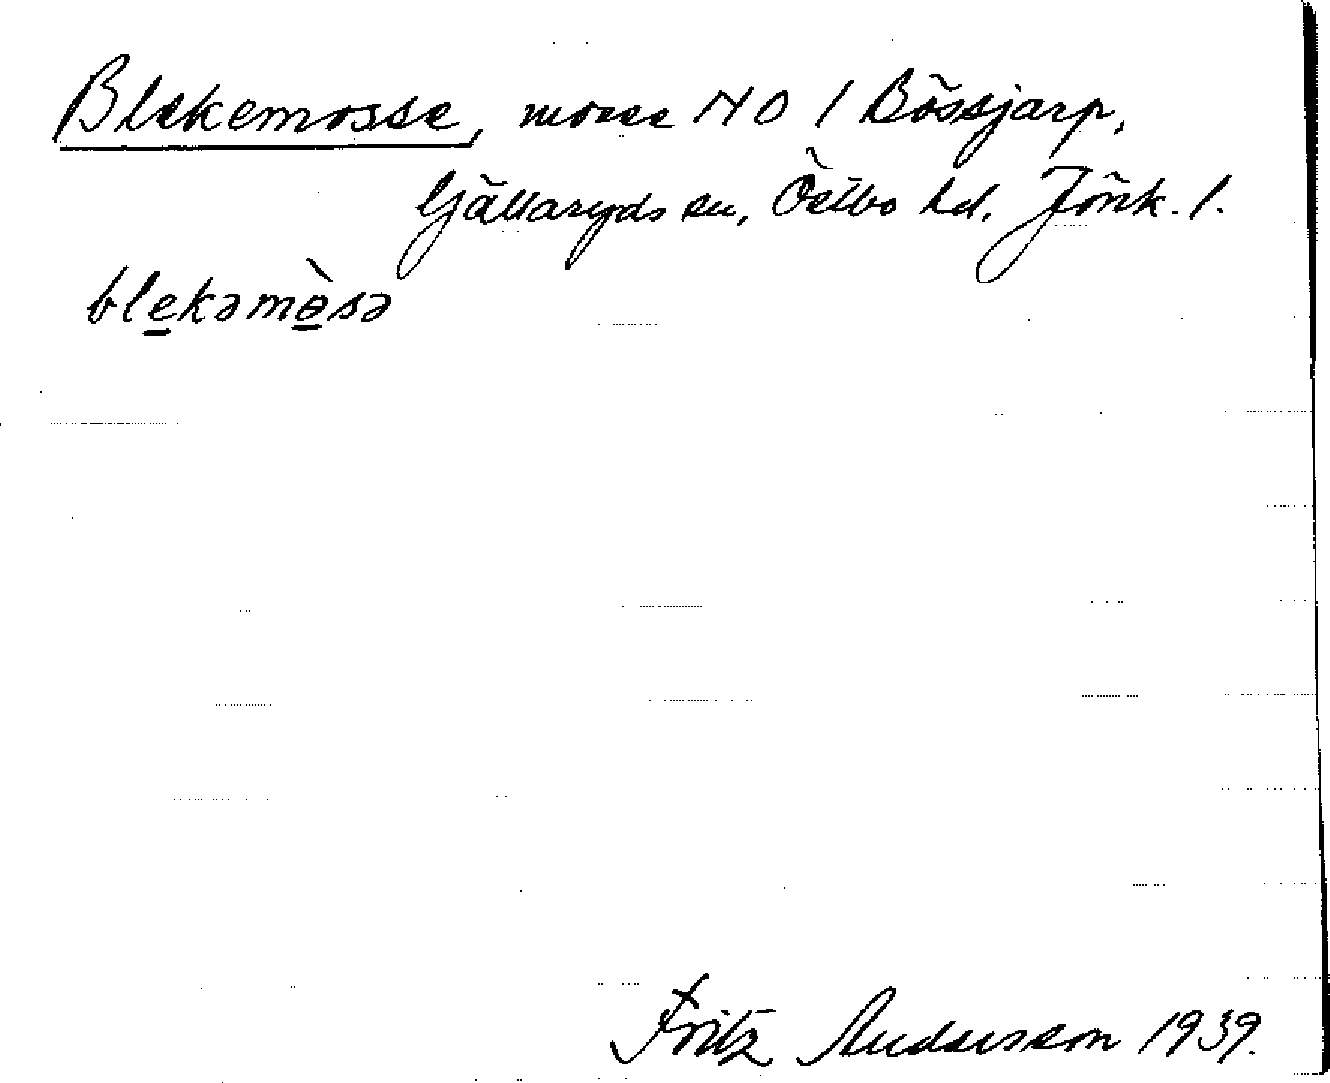 Blekemosse, mosse NO / Bössjarp,
Gällaryds sn, Östbo hd. Jönk. l.
ble̲kəmɵ̲̀sə
Fritz Andersson 1939.